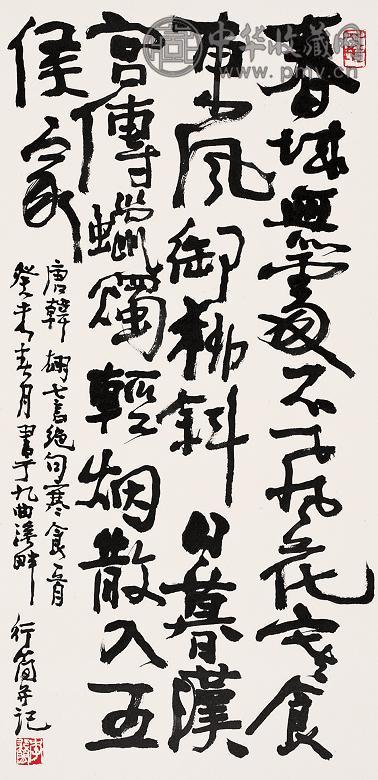 春城無處不飛花寒食
東風御柳斜日暮漢
宮傳蠟燭輕烟散入五
侯家
唐韓翃七言绝句寒食一首
癸未春月書于九曲溪畔
行簡并记
中华收藏网